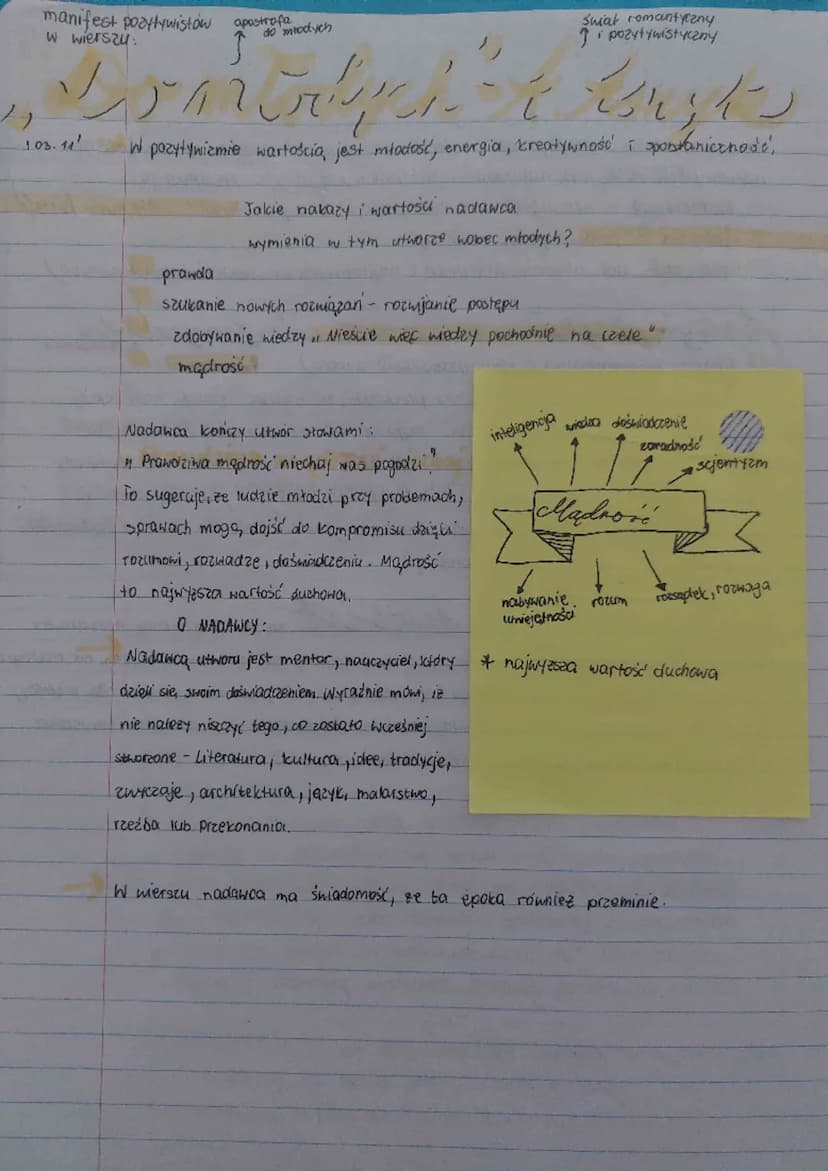 manifest pozytywistów
w wierszu:
apostrofa
do młodych
świat romantyczny
i pozytywistyczny
"Do młodych" A. Asnyk
03.11
W pozytywizmie wartością jest młodość, energia, kreatywność i spontaniczność.
Jakie nakazy i wartości nadawca
wymienia w tym utworze wobec młodych?
prawda
szukanie nowych rozwiązań - rozwijanie postępu
zdobywanie wiedzy "Nieście więc wiedzy pochodnię na czele"
mądrość
Nadawca kończy utwór słowami:
"Prawdziwa mądrość niechaj was pogodzi"
To sugeruje, że ludzie młodzi przy problemach,
sprawach mogą dojść do kompromisu dzięki
rozumowi, rozwadze, doświadczeniu. Mądrość
to najwyższa wartość duchowa.
O NADAWCY:
Nadawcą utworu jest mentor, nauczyciel, który
dzieli się swoim doświadczeniem. Wyraźnie mówi, iż
nie należy niszczyć tego, co zostało wcześniej
stworzone - literatura, kultura, idee, tradycje,
zwyczaje, architektura, język, malarstwo,
rzeźba lub przekonania.
W wierszu nadawca ma świadomość, że ta epoka również przeminie.
inteligencja
wiedza
doświadczenie
zaradność
scjentyzm
Mądrość
nabywanie
umiejętności
rozum
rozsądek, rozwaga
* najwyższa wartość duchowa